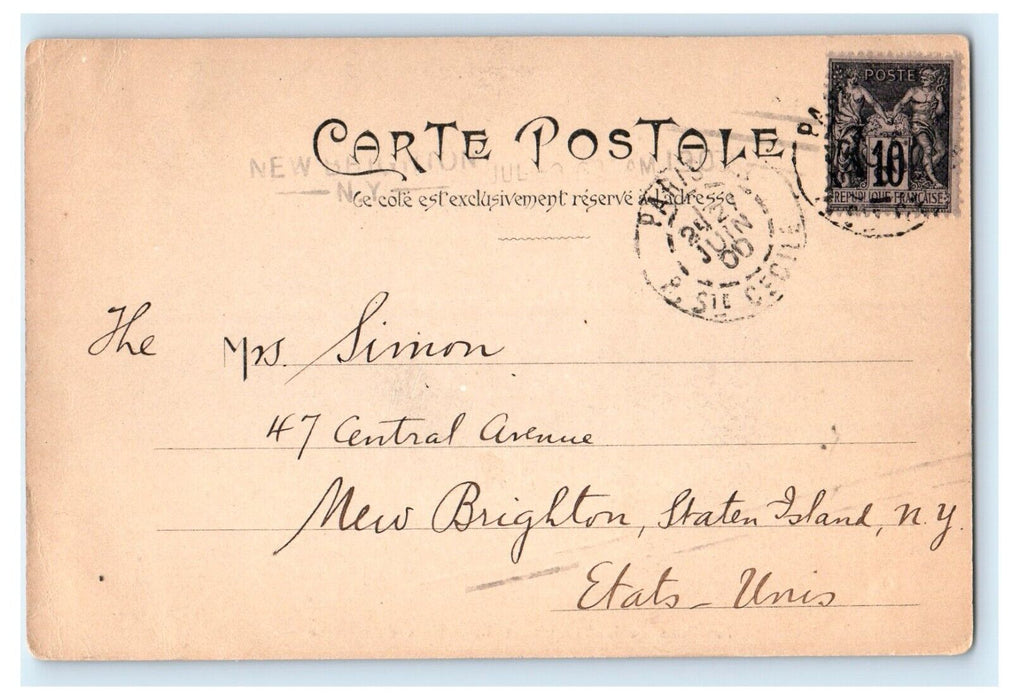 POSTE
10
REPUBLIQUE FRANCAISE
CARTE POSTALE
NEW BRIGHTON
N.Y.
JUL
Ce coté est exclusivement réservé à l'adresse
PARIS
24
JUIN
00
R. STE CECILE
The Mrs. Simon
47 Central Avenue
New Brighton, Staten Island, N.Y.
Etats-Unis